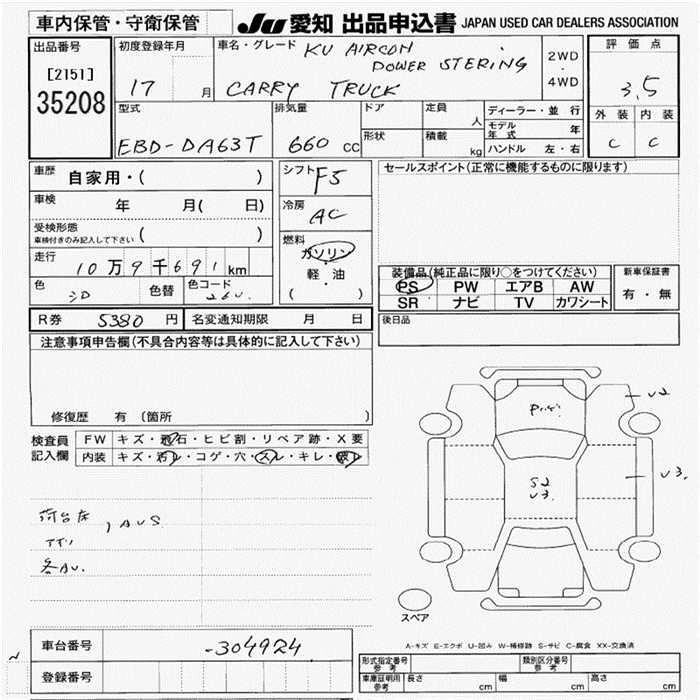 車内保管・守衛保管
JU 愛知 出品申込書 JAPAN USED CAR DEALERS ASSOCIATION
出品番号
[2151]
35208
初度登録年月
17 月
車名・グレード KU AIRCON
POWER STERING
CARRY TRUCK
2WD
・
4WD
評価点
3.5
外装 内装
C C
型式
EBD-DA63T
排気量
660 CC
ドア
形状
定員
人
積載
kg
ディーラー・並行
モデル年式 年
ハンドル 左・右
車歴
自家用・( )
車検
年 月( 日)
受検形態
車検付きのみ記入して下さい ( )
走行
10万9千691km
色
色替
色コード
26U
シフト F5
冷房
AC
燃料
ガソリン
・
軽・油
・
( )
セールスポイント(正常に機能するものに限ります)
装備品(純正品に限り○をつけてください)
PS PW エアB AW
SR ナビ TV カワシート
新車保証書
有・無
R券 5380 円 名変通知期限 月 日
後日品
注意事項申告欄(不具合内容等は具体的に記入して下さい)
修復歴 有(箇所 )
検査員
記入欄
FW キズ・飛石・ヒビ割・リペア跡・X要
内装 キズ・汚レ・コゲ・穴・スレ・キレ・破レ
荷台床
, AUS
各AU.
U2
S2
U3.
U3.
スペア
A-キズ E-エクボ U-凹み W-補修跡 S-サビ C-腐食 XX-交換済
車台番号 -304924
登録番号
形式指定番号
参考
類別区分番号
参考
車庫証明用
参考
長さ cm 幅 cm 高さ cm